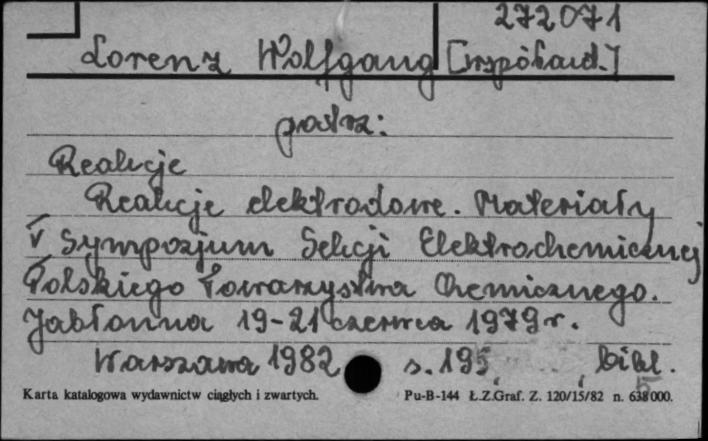 272071
Lorenz Wolfgang [współaut.]
patrz:
Reakcje
Reakcje elektrodowe. Materiały
V Sympozjum Sekcji Elektrochemicznej
Polskiego Towarzystwa Chemicznego.
Jabłonna 19-21 czerwca 1979 r.
Warszawa 1982 s. 195 bibl.
Karta katalogowa wydawnictw ciągłych i zwartych. Pu-B-144 Ł.Z.Graf. Z. 120/15/82 n. 638 000.